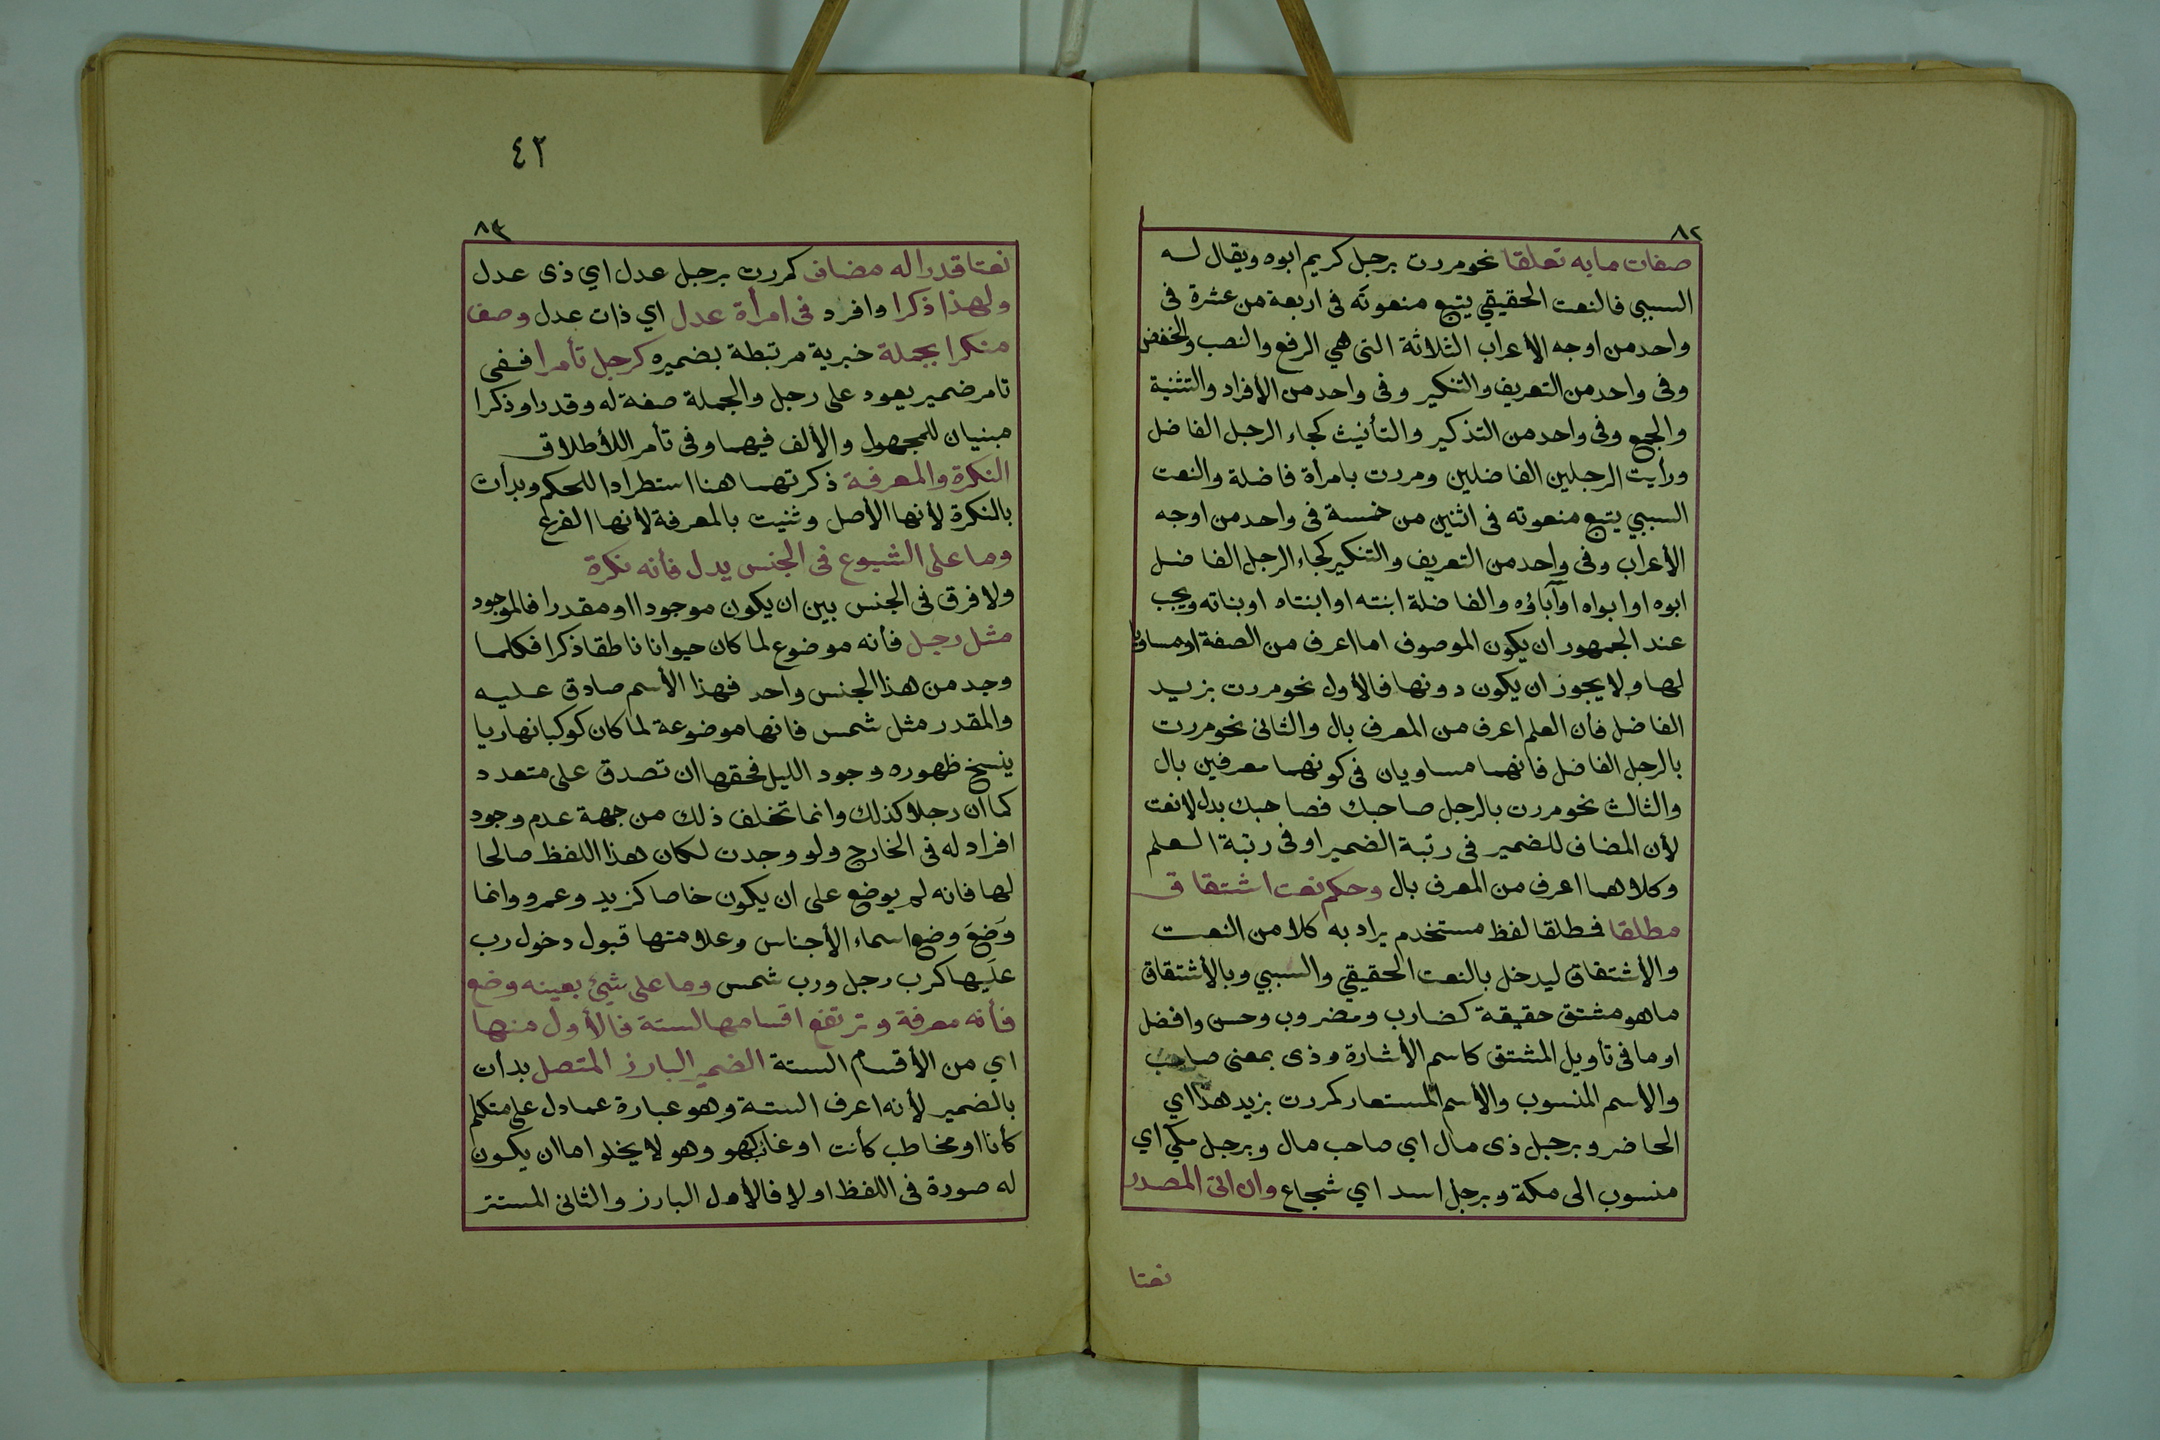 ٨٢
صفات ما به تعلقا نحو مررت برجل كريم ابوه ويقال له
السببي فالنعت الحقيقي يتبع منعوتَه فى اربعة من عشرة فى
واحد من اوجه الأعراب الثلاثة التى هي الرفع والنصب والخفض
وفى واحد من التعريف والتنكير وفى واحد من الأفراد والتثنية
والجمع وفى واحد من التذكير والتأنيث كجاء الرجل الفاضل
ورأيت الرجلين الفاضلين ومررت بامرأة فاضلة والنعت
السببي يتبع منعوته فى اثنين من خمسة فى واحد من اوجه
الأعراب وفى واحد من التعريف والتنكير كجاء الرجل الفاضل
ابوه او ابواه اوآباؤه والفاضلة ابنته او ابنتاه او بناته ويجب
عند الجمهور ان يكون الموصوف اما اعرف من الصفة او مساويا
لها ولا يجوز ان يكون دونها فالأول نحو مررت بزيد
الفاضل فأن العلم اعرف من المعرف بال والثانى نحو مررت
بالرجل الفاضل فانهما مساويان فى كونهما معرفين بال
والثالث نحو مررت بالرجل صاحبك فصاحبك بدل لا نعت
لأن المضاف للضمير فى رتبة الضمير او فى رتبة العلم
وكلاهما اعرف من المعرف بال وحكم نعت اشتقاق
مطلقا فمطلقا لفظ مستخدم يراد به كلا من النعت
والأشتقاق ليدخل بالنعت الحقيقي والسببي وبالأشتقاق
ما هو مشتق حقيقة كضارب ومضروب وحسن وافضل
او ما فى تأويل المشتق كاسم الأشارة وذى بمعنى صاحب
والاسم المنسوب والأسم المستعار كمررت بزيد هذا اي
الحاضر وبرجل ذى مال اي صاحب مال وبرجل مكّي اي
منسوب الى مكة وبرجل اسد اي شجاع وان اتى المصدر
نعتا
٤٢
٨٣
نعتا قدرا له مضاف كمررت برجل عدل اي ذى عدل
ولهذا ذكرا وافرد فى امرأة عدل اي ذات عدل وصف
منكرا بجملة خبرية مرتبطة بضميره كرجل تأمرا ففى
تامر ضمير يعود على رجل والجملة صفة له وقدرا وذكرا
مبنيان للمجهول والألف فيهما وفى تأمر اللأطلاق
النكرة والمعرفة ذكرتهما هنا استطرادا للحكم وبدأت
بالنكرة لأنها الأصل وثنيت بالمعرفة لأنها الفرع
وما على الشيوع فى الجنس يدل فأنه نكرة
ولا فرق فى الجنس بين ان يكون موجودا او مقدرا فالموجود
مثل رجل فأنه موضوع لما كان حيوانا ناطقا ذكرا فكلما
وجد من هذا الجنس واحد فهذا الأسم صادق عليه
والمقدر مثل شمس فانها موضوعة لما كان كوكبا نهاريا
ينسخ ظهوره وجود الليل فحقها ان تصدق على متعدد
كما ان رجلا كذلك وانما تخلف ذلك من جهة عدم وجود
افراد له فى الخارج ولو وجدت لكان هذا اللفظ صالحا
لها فانه لم يوضع على ان يكون خاصا كزيد وعمرو وانما
وَضعَ وضع اسماء الأجناس وعلامتها قبول دخول رب
عليها كرب رجل ورب شمس وما على شيئ بعينه وضع
فأنه معرفة وترتفع اقسامها لستة فالأول منها
اي من الأقسام الستة الضمير البارز المتصل بدأت
بالضمير لأنه اعرف الستة وهو عبارة عما دل على متكلم
كأنا او مخاطب كأنت او غائب كهو وهو لا يخلوا اما ان يكون
له صورة فى اللفظ اولا فالأول البارز والثانى المستتر